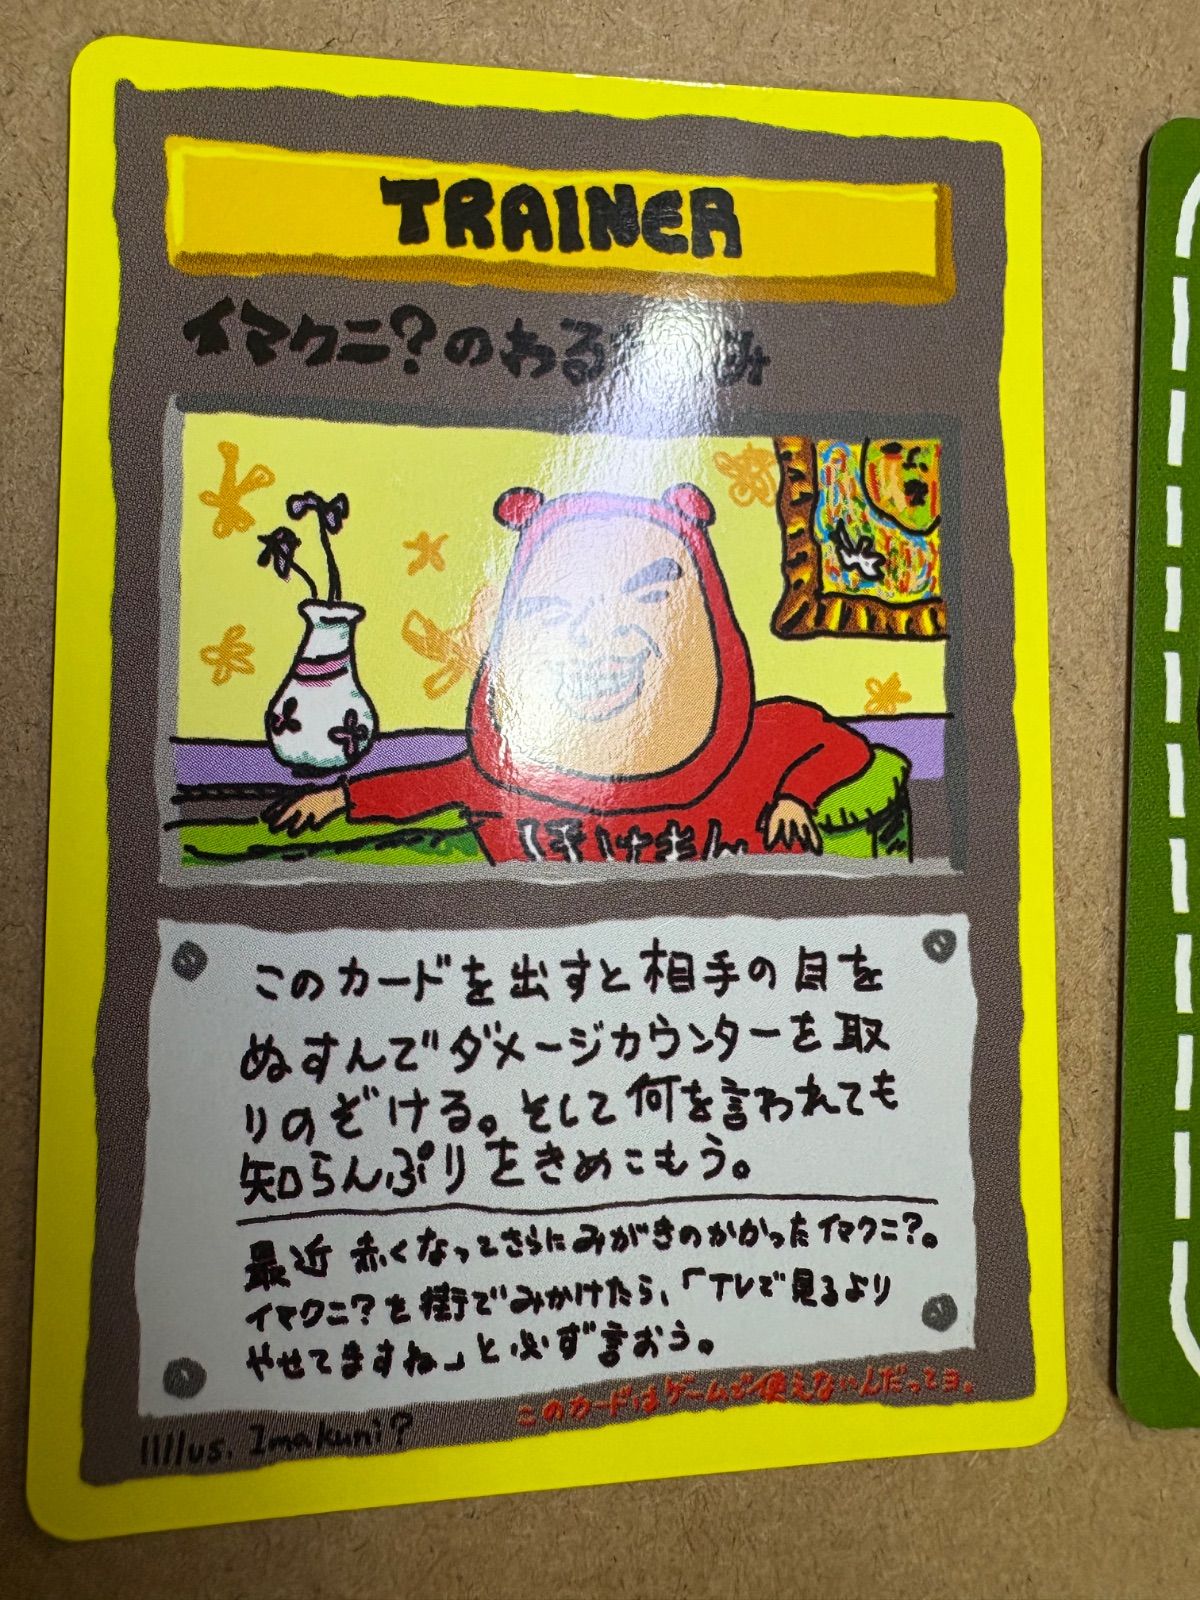 TRAINER
イマクニ?のわる み
ぼけきん
このカードを出すと相手の目を
ぬすんでダメージカウンターを取
りのぞける。そして何を言われても
知らんぷりをきめこもう。
最近赤くなってさらにみがきのかかったイマクニ?。
イマクニ?を街でみかけたら、「TVで見るより
やせてますね」と必ず言おう。
このカードはゲームで使えないんだってヨ。
Illus. Imakuni?